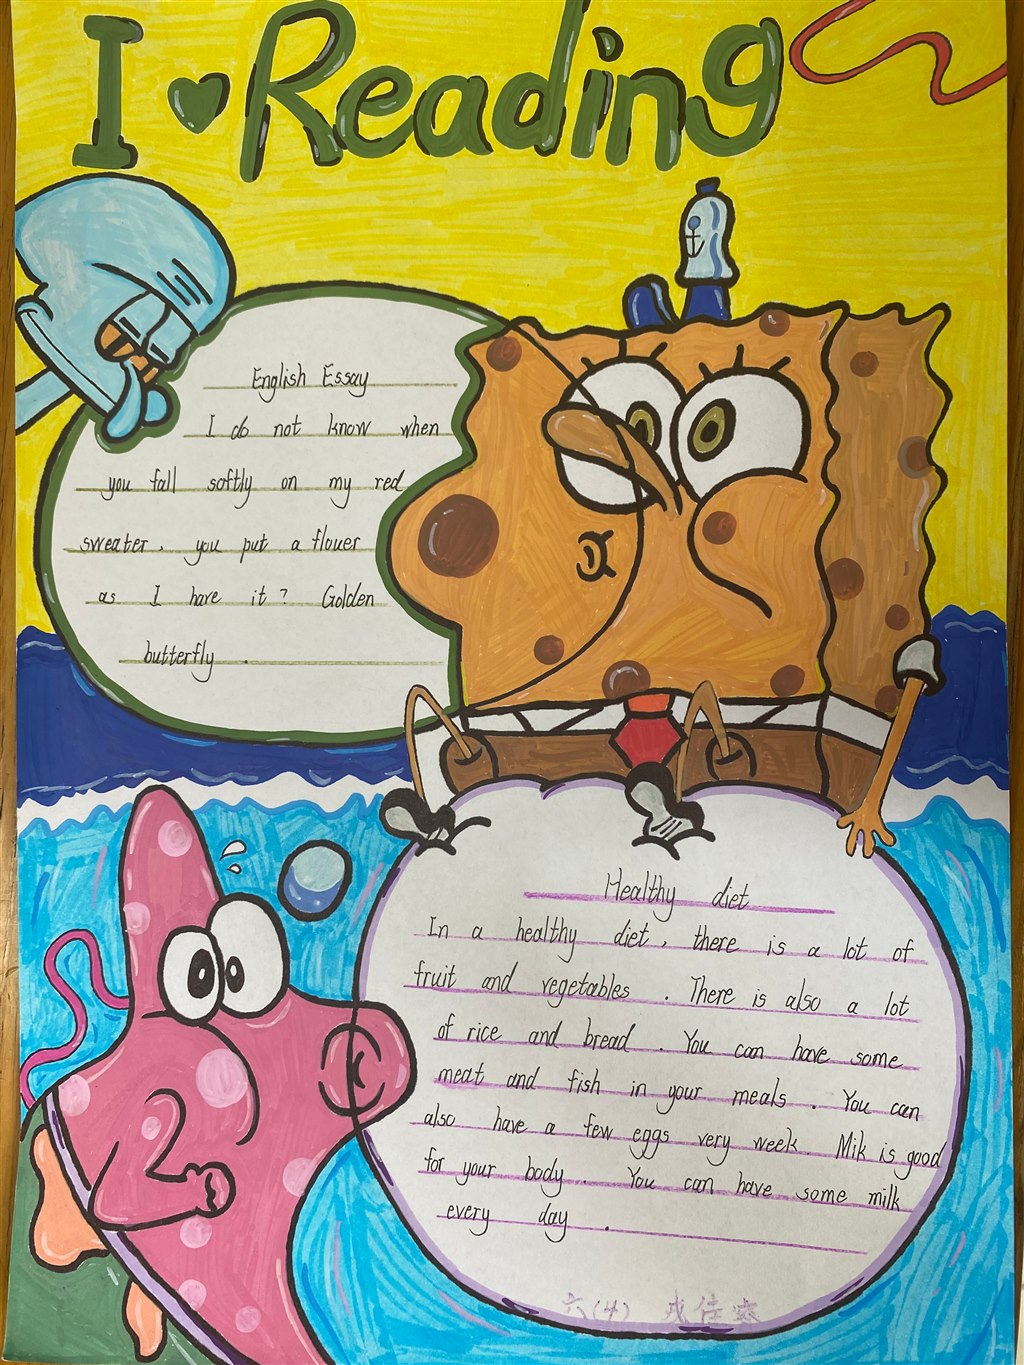 I ♥ Reading
English Essay
I do not know when
you fall softly on my red
sweater, you put a flower
as I have it? Golden
butterfly .
Healthy diet
In a healthy diet, there is a lot of
fruit and vegetables . There is also a lot
of rice and bread . You can have some
meat and fish in your meals . You can
also have a few eggs very week. Mik is good
for your body . You can have some milk
every day .
六(4)